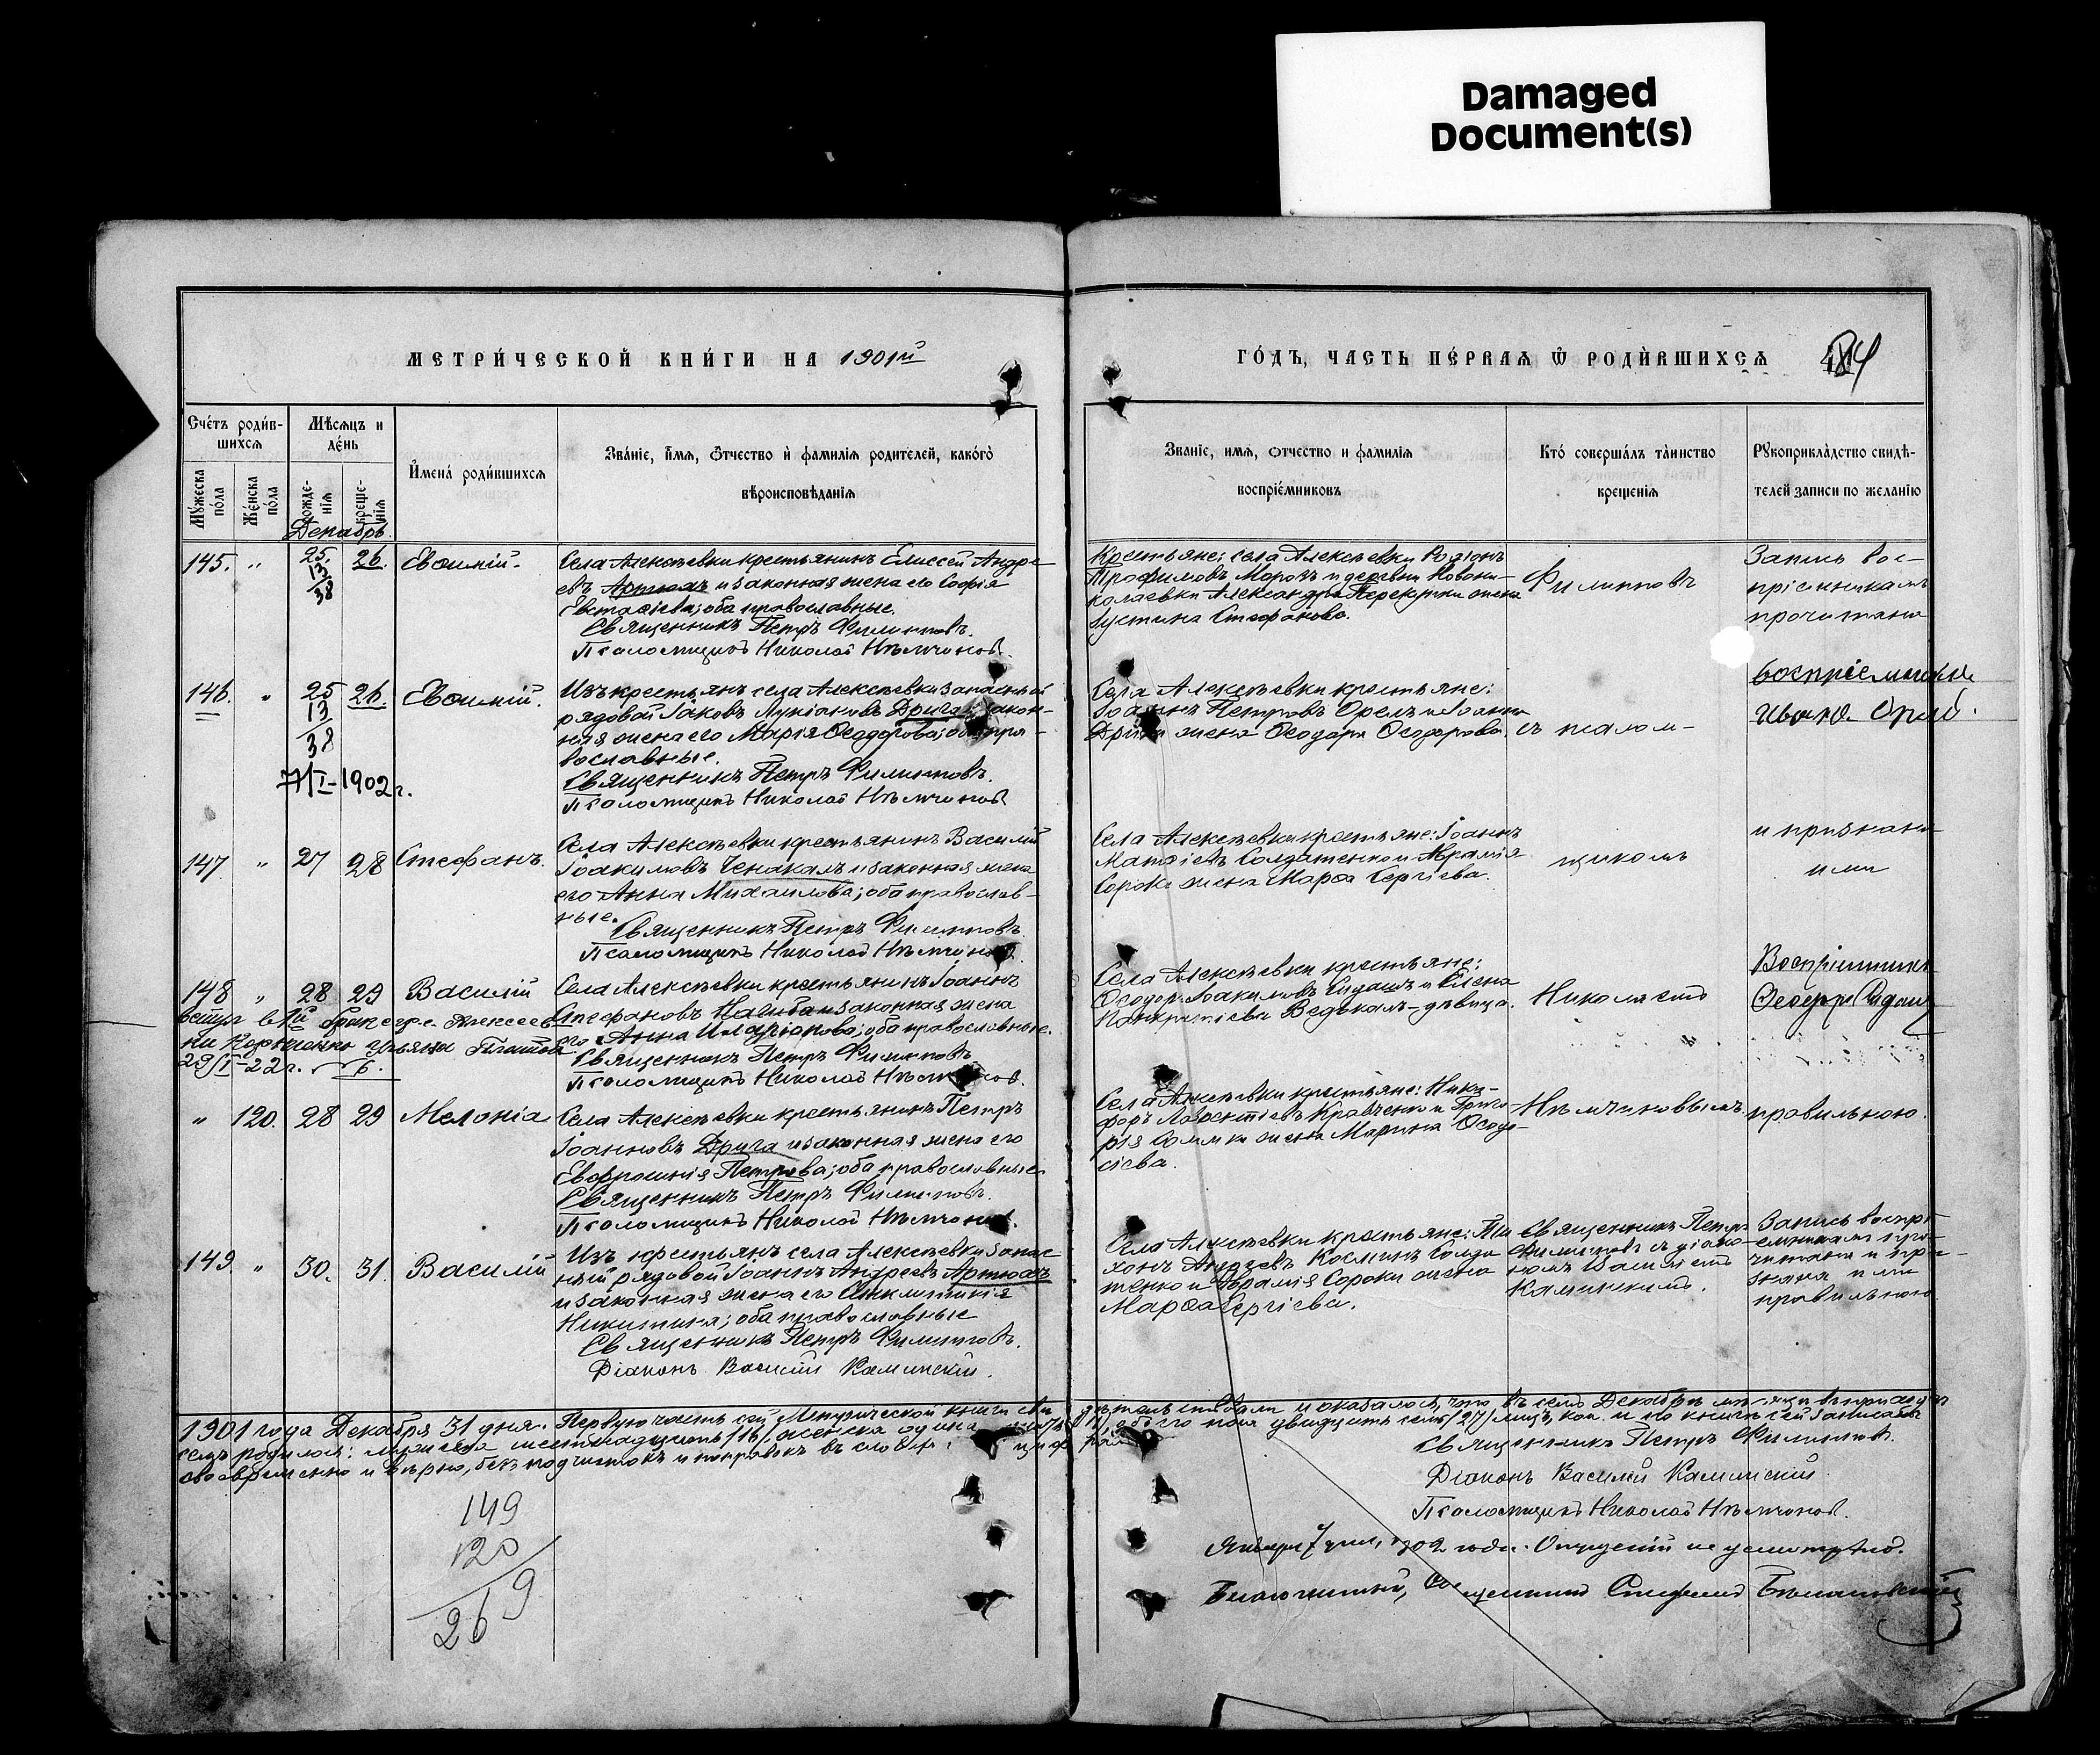 Damaged
Document(s)
МЕТРИ́ЧЕСКОЙ КНИ́ГИ НА 1901й
ГО́ДЪ, ЧАСТЬ ПЕ́РВАѦ Ѿ РОДИ́ВШИХСѦ
Сче́тъ роди́в-
шихсѧ
Мѣ́сѧцъ и
де́нь
Мꙋ́жеска
по́ла
Же́нска
по́ла
рожде-
нїѧ
креще-
нїѧ
И҆мена̀ роди́вшихсѧ
Зва́нїе, и҆́мѧ, ѻ҆́тчество и҆ фами́лїѧ роди́телей, како́гѡ
вѣроисповѣ́данїѧ
Зва́нїе, и́мѧ, о́тчество и фами́лїѧ
воспрїе́мниковъ
Кто́ соверша́лъ та́инство
креще́нїѧ
Рꙋкоприкла́дство свидѣ́-
телей за́писи по жела́нїю
Декабрь
145. " 25. 26. Евѳимій.
13
38
Села Алексѣевки крестьянинъ Елиссей Андре-
евъ Артюхъ и законная жена его Софія
Евстафіева; оба православные.
Священникъ Петръ Филипповъ.
Псаломщикъ Николай Нѣмчиновъ.
Крестьяне: села Алексѣевки Родіонъ
Трофимовъ Морозъ и деревни Новони-
колаевки Александра жена
Іустина Стефанова.
Филипповъ
Запись вос-
пріемникамъ
прочитана
146. " 25 26. Евѳимій.
13
38
7/I-1902 г.
Изъ крестьянъ села Алексѣевки запасный
рядовой Іаковъ Лукіановъ Дрига и закон-
ная жена его Марія Ѳеодорова; оба пра-
вославные.
Священникъ Петръ Филипповъ.
Псаломщикъ Николай Нѣмчиновъ
Села Алексѣевки крестьяне:
Іоаннъ Петровъ Орелъ и Іоанна
Дриги жена Ѳеодора Ѳеодорова.
съ псалом-
воспріемникъ
Иванъ Орелъ.
147. " 27 28 Стефанъ.
Села Алексѣевки крестьянинъ Василій
Іоакимовъ Чепакалъ и законная жена
его Анна Михаилова; оба православ-
ные.
Священникъ Петръ Филипповъ.
Псаломщикъ Николай Нѣмчиновъ.
Села Алексѣевки крестьяне: Іоаннъ
Матѳіевъ Солдатенко и Авраамія
Сороки жена Марѳа Сергіева.
щикомъ
и признана
ими
148 " 28 29 Василій
29/I-22 г.
Села Алексѣевки крестьянинъ Іоаннъ
Стефановъ и законная жена
его Анна Иларіонова; оба православные.
Священникъ Петръ Филипповъ
Псаломщикъ Николай Нѣмчиновъ.
Села Алексѣевки крестьяне:
Ѳеодоръ Іоакимовъ и Елена
девица.
Николаемъ
Воспріемникъ
Ѳеодоръ
" 120. 28 29 Мелонія
Села Алексѣевки крестьянинъ Петръ
Іоанновъ Дрига и законная жена его
Евфросинія Петрова; оба православные
Священникъ Петръ Филипповъ.
Псаломщикъ Николай Нѣмчиновъ.
Села Алексѣевки крестьяне: Ники-
форъ Лаврентіевъ Кравченко и Григо-
рія жена Марина Ѳеодо-
сіева.
Нѣмчиновымъ.
правильною.
149. " 30. 31. Василій
Изъ крестьянъ села Алексѣевки запас-
ный рядовой Іоаннъ Андреевъ Артюхъ
и законная жена его Асклипіанія
Никитина; оба православные
Священникъ Петръ Филипповъ.
Діаконъ Василій Каминскій.
Села Алексѣевки крестьяне: Ти-
хонъ Андреевъ Солда-
тенко и Авраамія Сороки жена
Марѳа Сергіева.
Священникъ Петръ
Филипповъ съ діако-
номъ Василіемъ
Каминскимъ.
Запись воспрі-
емникамъ про-
читана и при-
знана ими
правильною
1901 года Декабря 31 дня. Первую часть сей Метрической книги свидѣтельствовали и оказалось, что въ семъ Декабрѣ мѣсяцѣ въ приходѣ
семъ родилось: мужеска шестнадцать /16/, женска одиннадцать /11/, обоего пола двадцать семь /27/ лицъ, кои и по книгѣ сей записаны
своевременно и вѣрно, безъ подчистокъ и поправокъ въ словахъ и цифрахъ.
Священникъ Петръ Филипповъ.
Діаконъ Василій Каминскій.
Псаломщикъ Николай Нѣмчиновъ.
149
120
269
Января 7 дня, 1902 года. Опущеній не усмотрѣлъ.
Благочинный, Священникъ Стефанъ